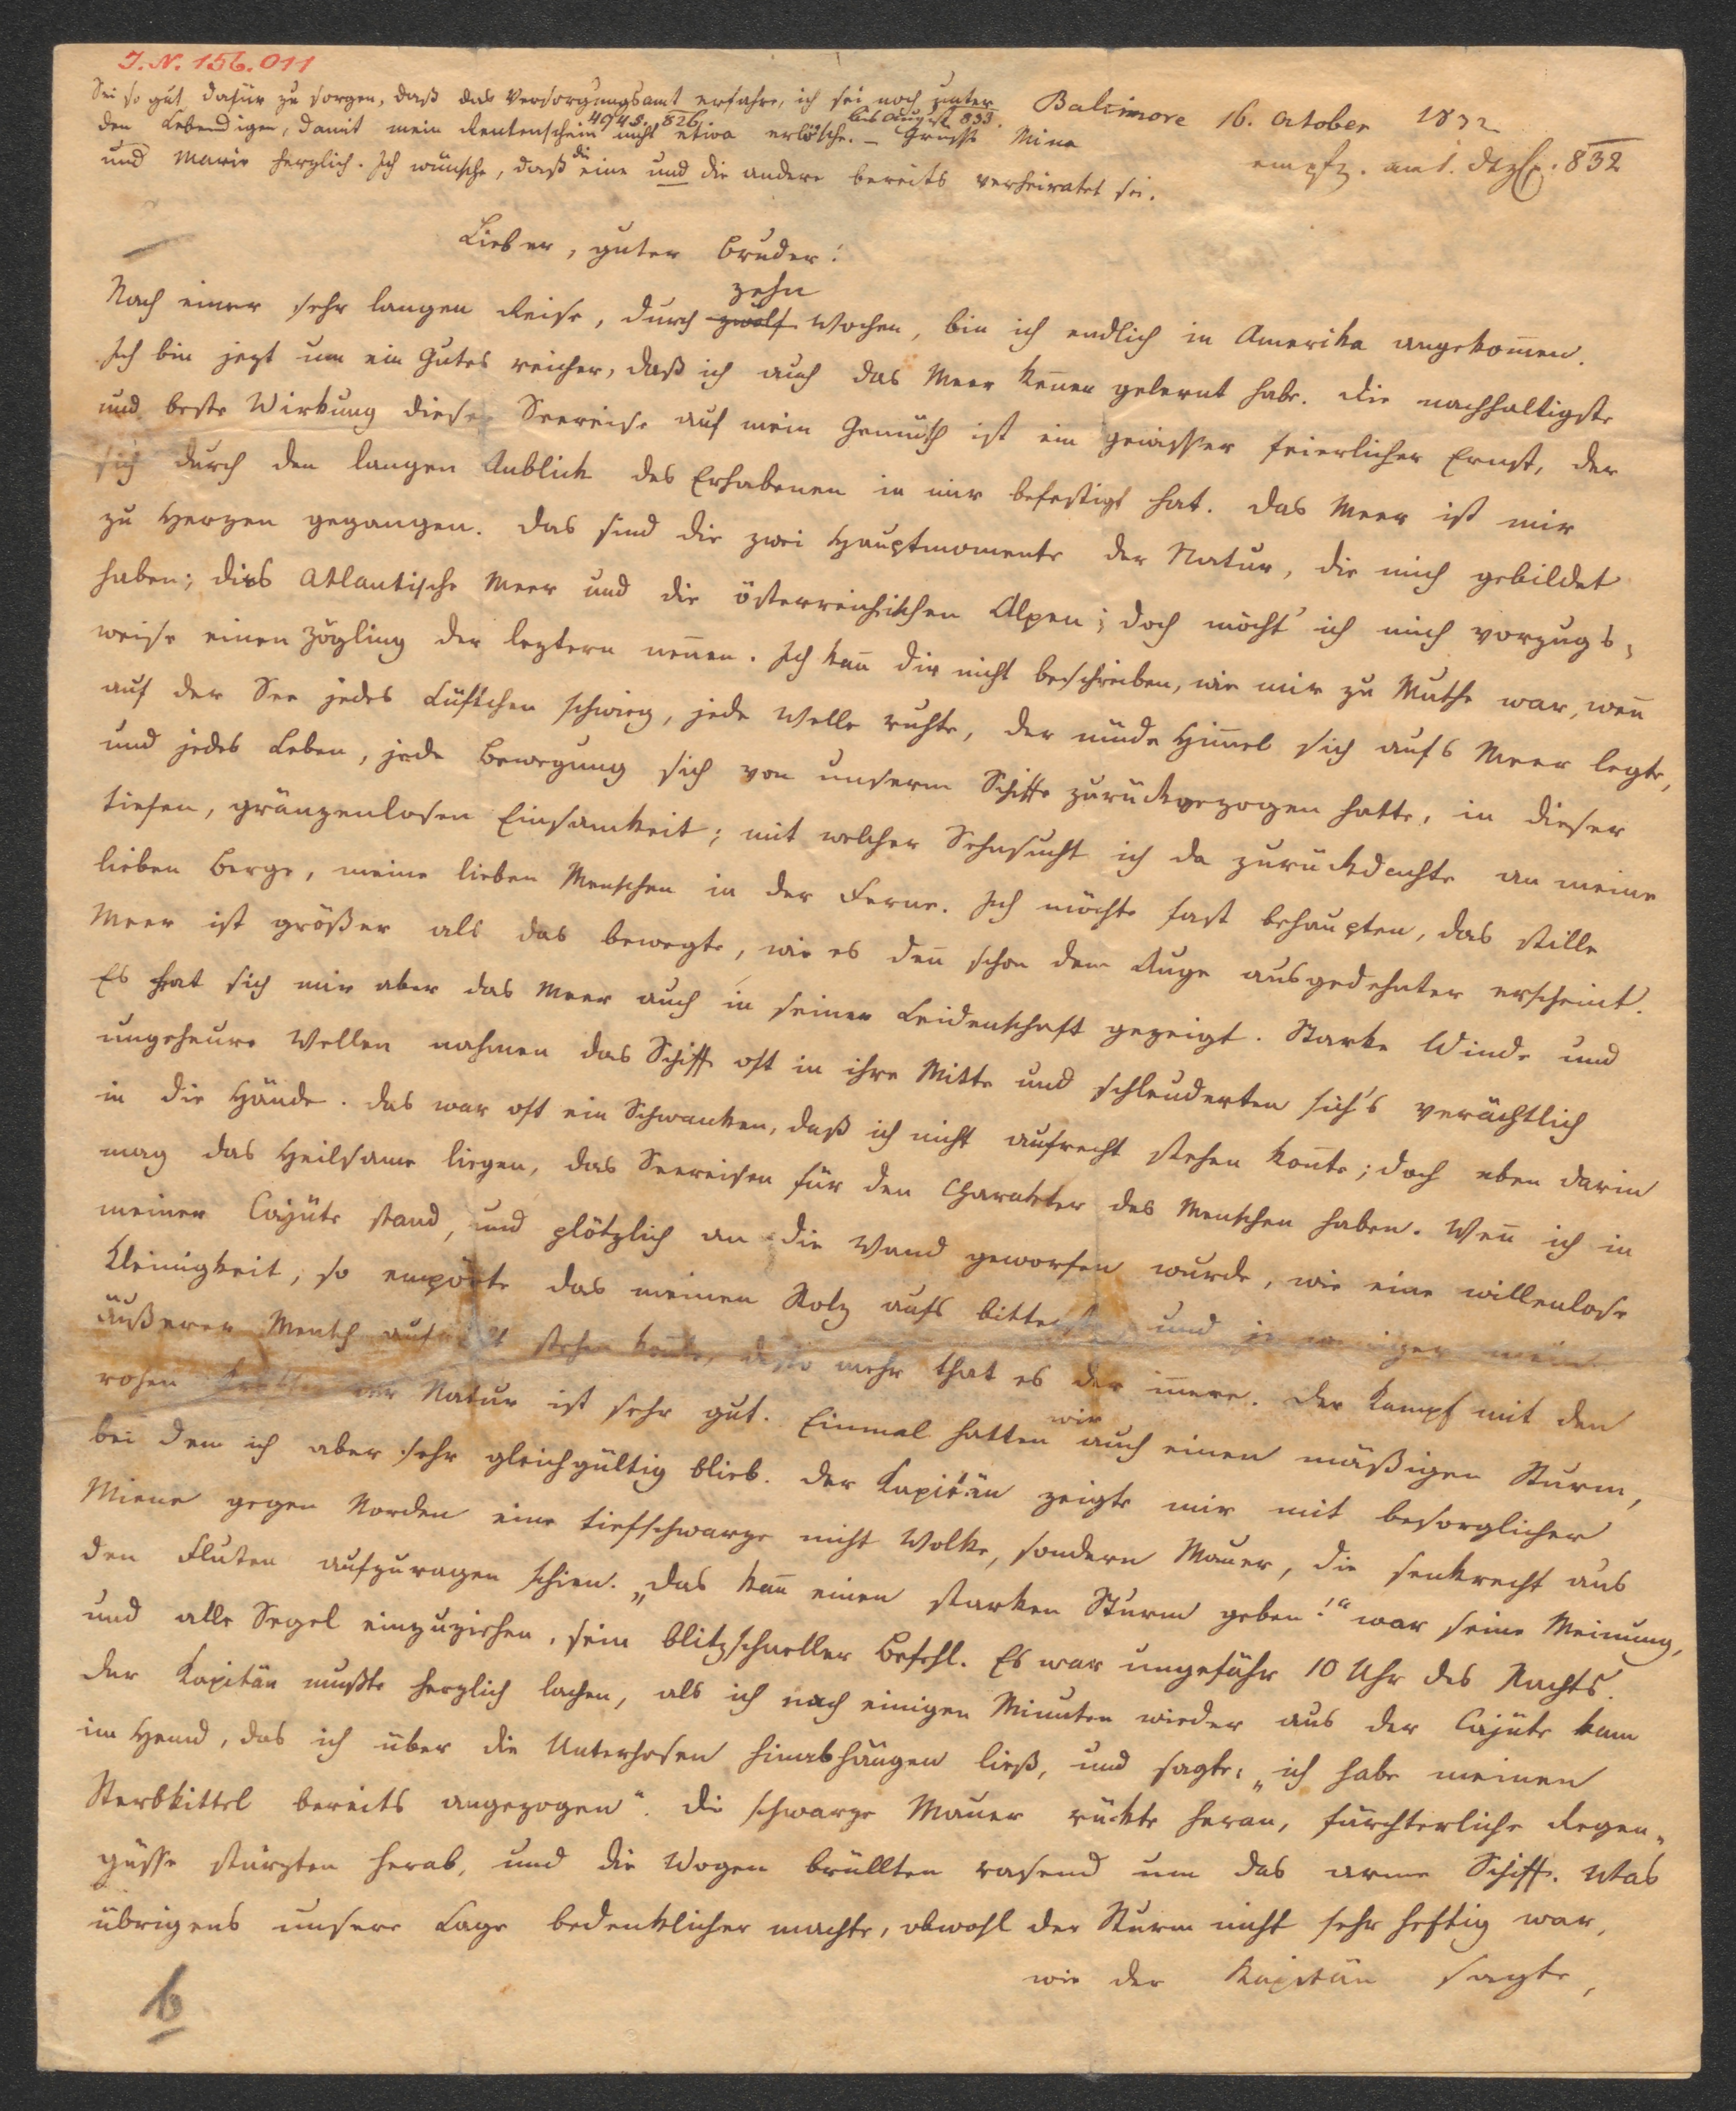 I. N. 156.011
Sei so gut dafür zu sorgen, daß das Versorgungsamt erfahre, ich sei noch unter
Baltimore 16. October 1832
bis August 833.
den Lebendigen, damit mein Rentenschein nicht etwa erlösche. – Grüsse Mina
empfg. am 1. 832
und Marie herzlich. Ich wünsche, daß die eine und die andere bereits verheiratet sei.
Lieber, guter Bruder!
zehn
Nach einer sehr langen Reise, durch zwölf Wochen, bin ich endlich in Amerika angekom̅en.
Ich bin jezt um ein Gutes reicher, daß ich auch das Meer ken̅en gelernt habe. Die nachhaltigste
und beste Wirkung dieser Seereise auf mein Gemüth ist ein gewisser feierlicher Ernst, der
sich durch den langen Anblick des Erhabenen in mir befestigt hat. Das Meer ist mir
zu Herzen gegangen. Das sind die zwei Hauptmomente der Natur, die mich gebildet
haben; dies Atlantische Meer und die österreichischen Alpen; doch möcht' ich mich vorzugs-
weise einen Zögling der leztern nen̅en. Ich kan̅ dir nicht beschreiben, wie mir zu Muthe war, wen̅
auf der See jedes Lüftchen schwieg, jede Welle ruhte, der müde Him̅el sich aufs Meer legte,
und jedes Leben, jede Bewegung sich von unserm Schiffe zurückgezogen hatte, in dieser
tiefen, gränzenlosen Einsamkeit; mit welcher Sehnsucht ich da zurückdachte an meine
lieben Berge, meine lieben Menschen in der Ferne. Ich möchte fast behaupten, das stille
Meer ist größer als das bewegte, wie es den̅ schon dem Auge ausgedehnter erscheint.
Es hat sich mir aber das Meer auch in seiner Leidenschaft gezeigt. Starke Winde und
ungeheure Wellen nahmen das Schiff oft in ihre Mitte und schleuderten sich's verächtlich
in die Hände. Das war oft ein Schwanken, daß ich nicht aufrecht stehen kon̅te; doch eben darin
mag das Heilsame liegen, das Seereisen für den Charakter des Menschen haben. Wen̅ ich in
meiner Cajüte stand, und plötzlich an die Wand geworfen wurde, wie eine willenlose
Kleinigkeit, so empörte das meinen Stolz aufs bitterste, und je weniger mein
äußerer Mensch aufrecht stehen kon̅te, desto mehr that es der in̅ere. Der Kampf mit den
rohen Kräften der Natur ist sehr gut. Einmal hatten wir auch einen mäßigen Sturm,
bei dem ich aber sehr gleichgültig blieb. Der Kapitän zeigte mir mit besorglicher
Miene gegen Norden eine tiefschwarze nicht Wolke, sondern Mauer, die senkrecht aus
den Fluten aufzuragen schien. „Das kan̅ einen starken Sturm geben!“ war seine Meinung,
und alle Segel einzuziehen, sein blitzschneller Befehl. Es war ungefähr 10 Uhr des Nachts.
Der Kapitän mußte herzlich lachen, als ich nach einigen Minuten wieder aus der Cajüte kam
im Hemd, das ich über die Unterhosen hinabhängen ließ, und sagte: „ich habe meinen
Sterbkittel bereits angezogen“. Die schwarze Mauer rückte heran, fürchterliche Regen-
güsse stürzten herab, und die Wogen brüllten rasend um das arme Schiff. Was
übrigens unsere Lage bedenklicher machte, obwohl der Sturm nicht sehr heftig war,
wie der Kapitän sagte,
b